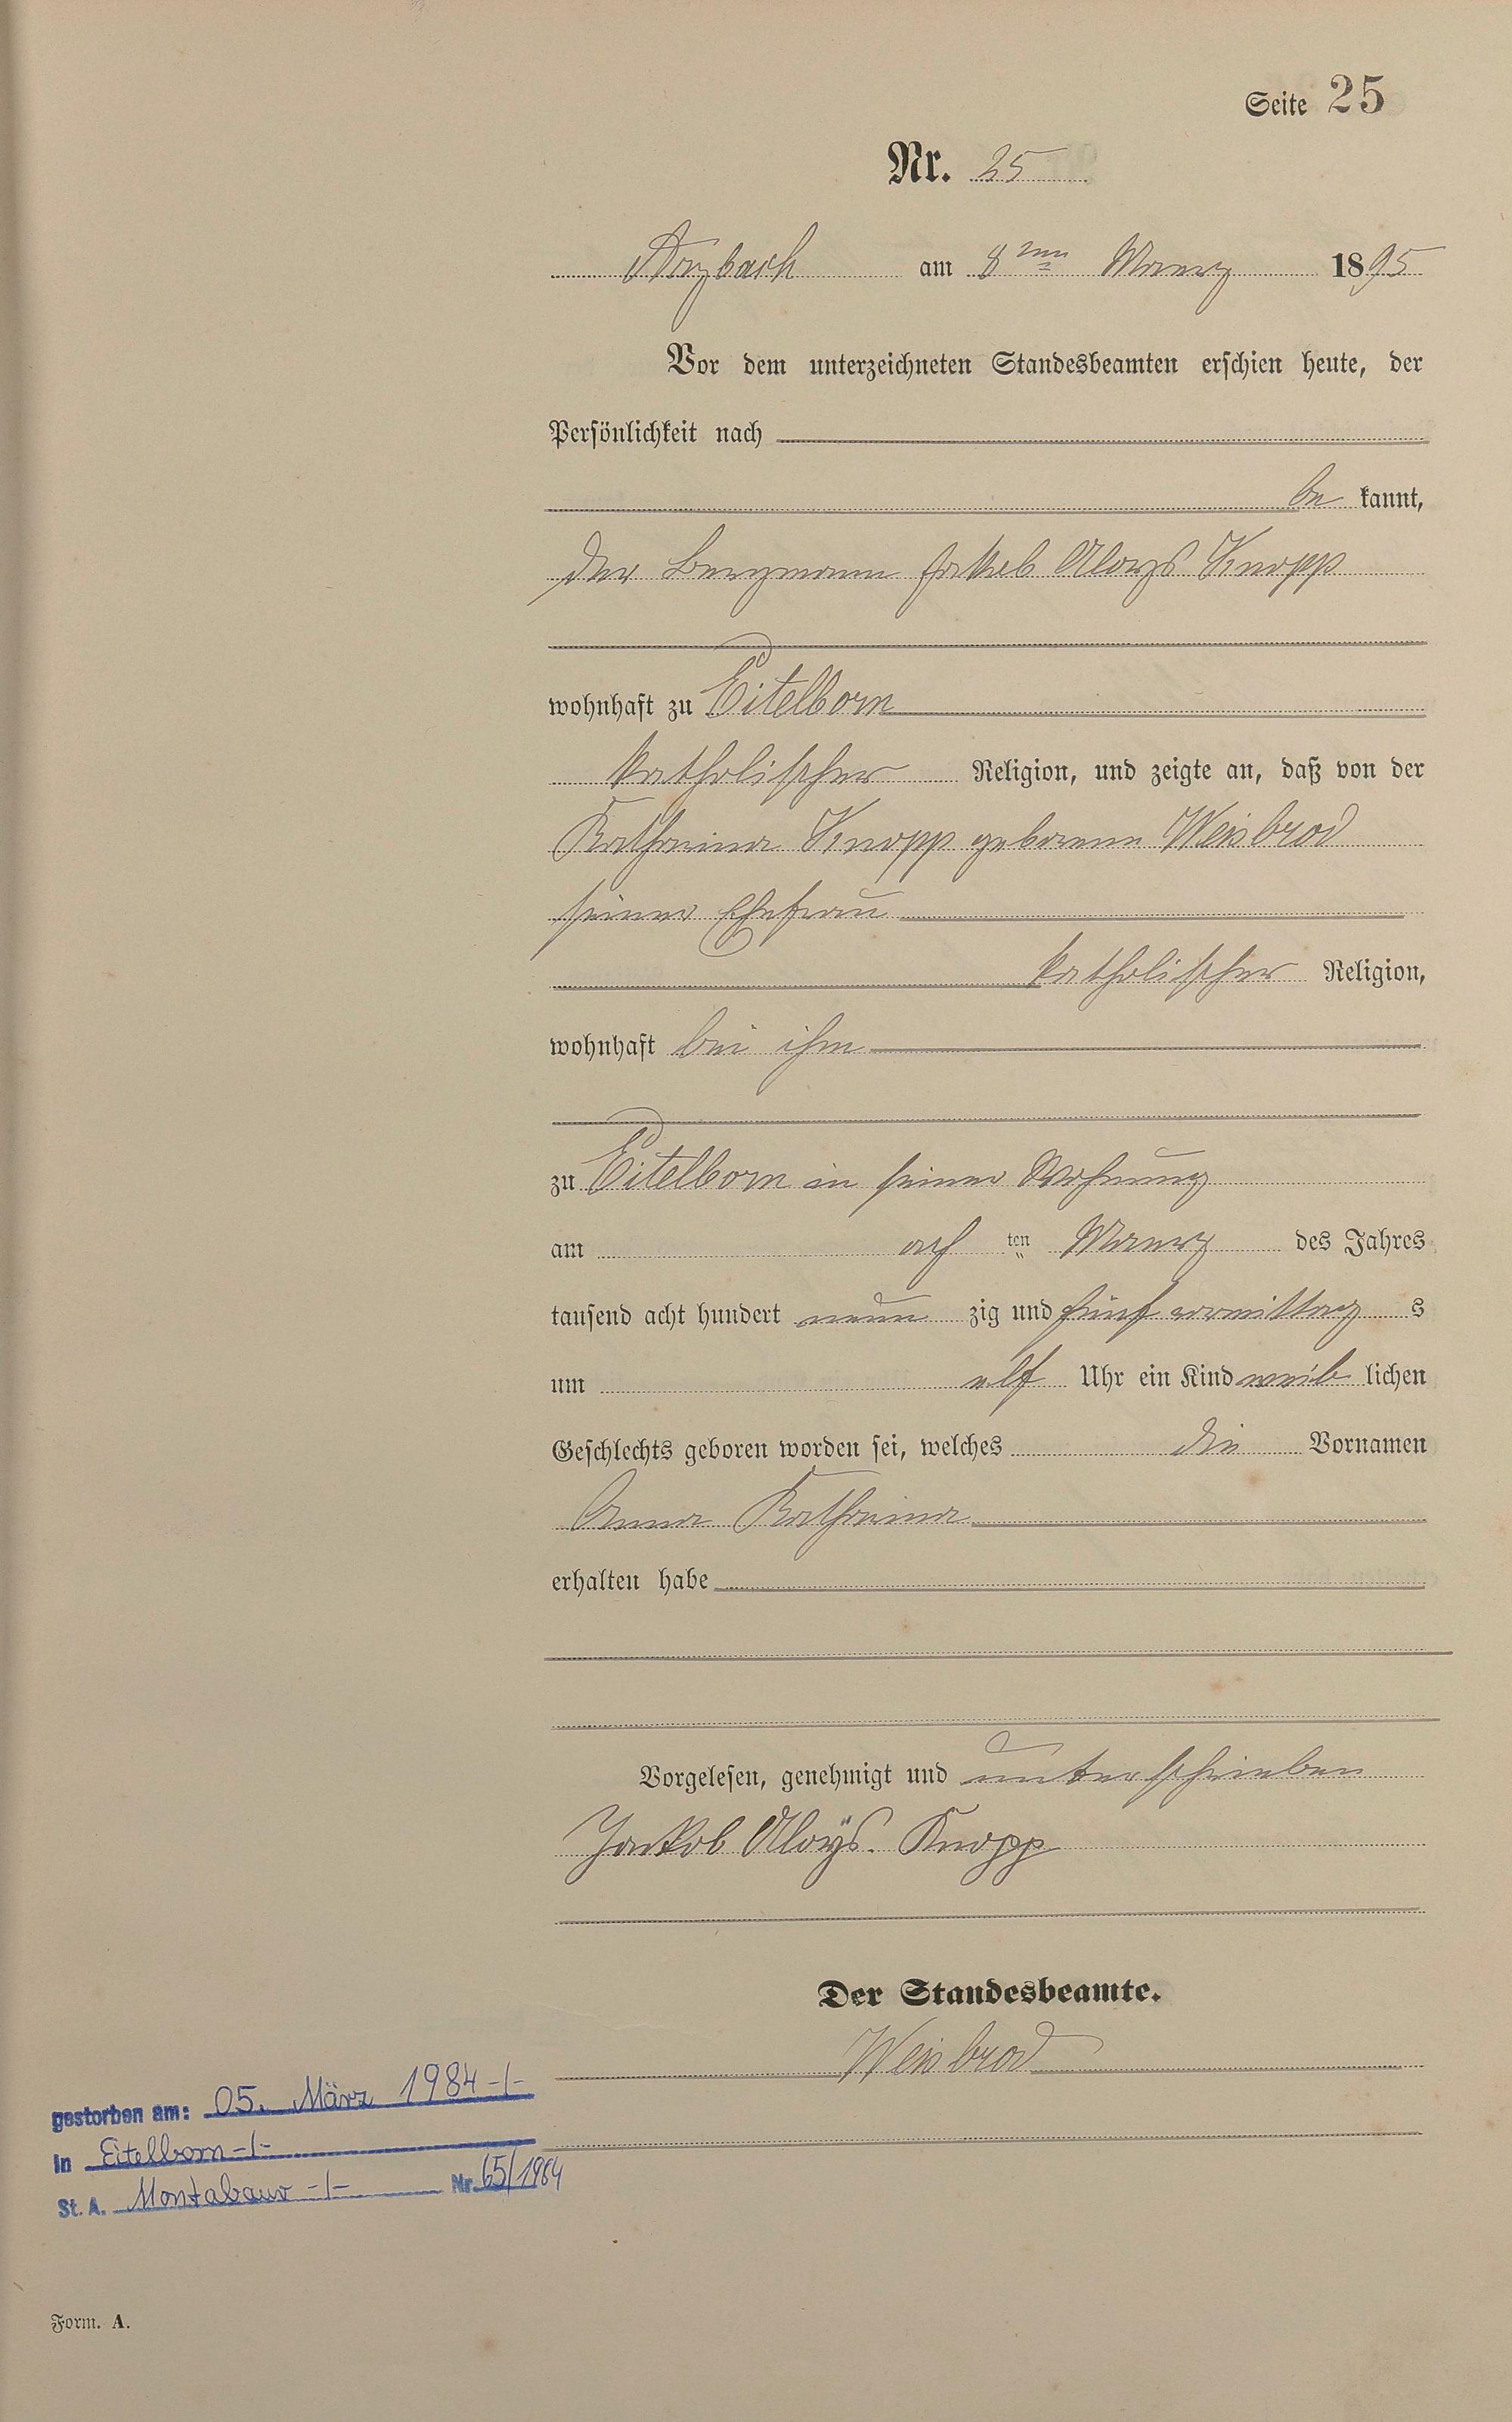 Seite 25
Nr. 25
Arzbach am 8ten Maerz 1895
Vor dem unterzeichneten Standesbeamten erschien heute, der
Persönlichkeit nach
be kannt,
der Bergmann Jakob Aloys Knopp
wohnhaft zu Eitelborn
katholischer Religion, und zeigte an, daß von der
Katharina Knopp geborene Weisbrod
seiner Ehefrau
katholischer Religion,
wohnhaft bei ihm
zu Eitelborn in seiner Wohnung
am ach ten Maerz des Jahres
tausend acht hundert neun zig und fünf vormittag s
um elf Uhr ein Kind weib lichen
Geschlechts geboren worden sei, welches die Vornamen
Anna Katharina
erhalten habe
Vorgelesen, genehmigt und unterschrieben
Jakob Aloÿs. Knopp
Der Standesbeamte.
Weisbrod
gestorben am: 05. März 1984 -/-
in Eitelborn -/-
St. A. Montabaur -/- Nr. 65/1984
Form. A.